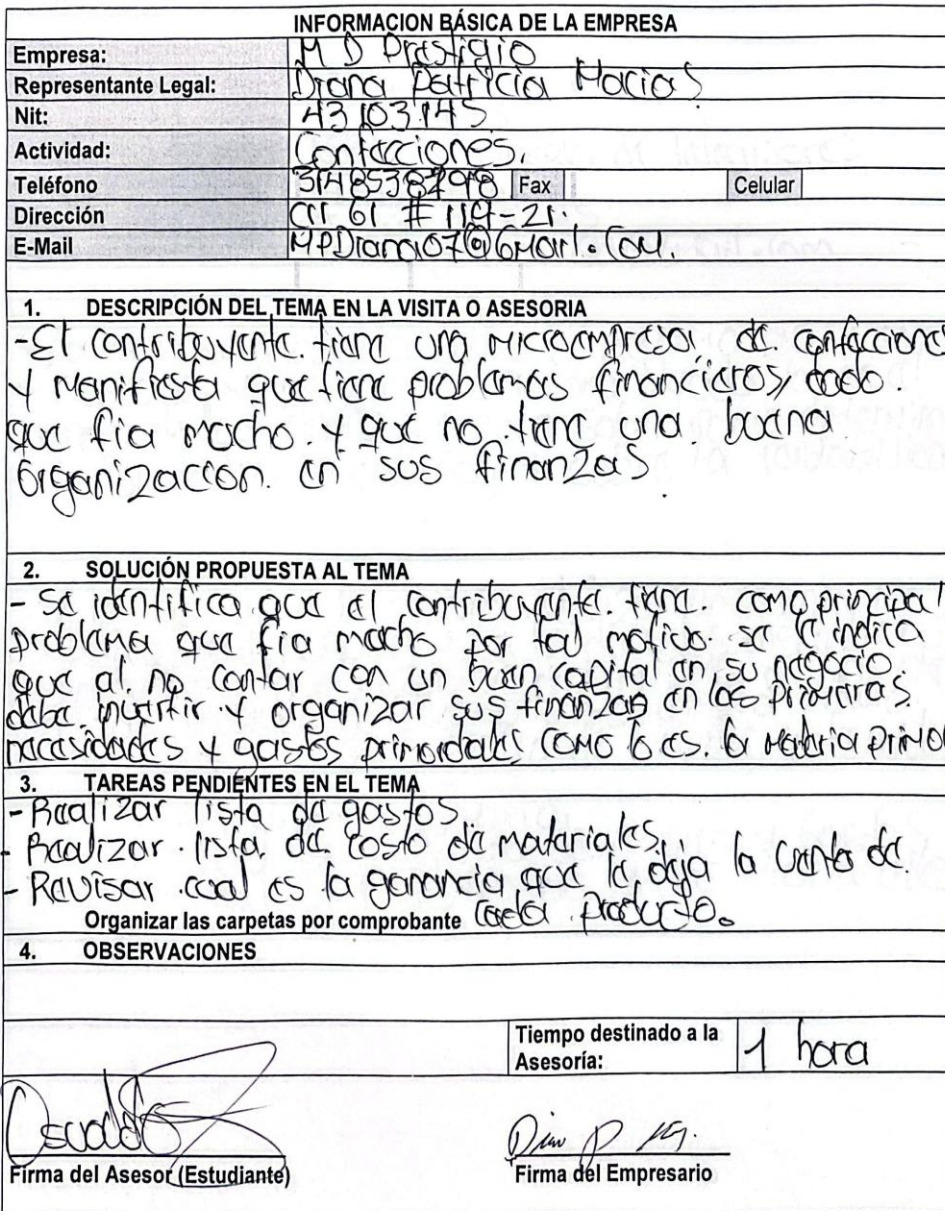 INFORMACION BÁSICA DE LA EMPRESA
Empresa: M D Prestigio
Representante Legal: Diana Patricia Macias
Nit: 43103145
Actividad: Confecciones.
Teléfono 3148538298 Fax Celular
Dirección Cll 61 # 119-21.
E-Mail MPDiana07@GMail.Com.
1. DESCRIPCIÓN DEL TEMA EN LA VISITA O ASESORIA
-El contribuyente tiene una microempresa de confeccione
y manifiesta que tiene problemas financieros, dado
que fia mucho y que no tiene una buena
organizacion en sus finanzas.
2. SOLUCIÓN PROPUESTA AL TEMA
- Se identifica que el contribuyente tiene como principal
problema que fia mucho por tal motivo se le indica
que al no contar con un buen capital en su negocio
debe invertir y organizar sus finanzas en las primeras
necesidades y gastos primordiales como lo es la materia prima
3. TAREAS PENDIENTES EN EL TEMA
- Realizar lista de gastos.
- Realizar lista de costo de materiales.
- Revisar cual es la ganancia que le deja la venta de
Organizar las carpetas por comprobante cada producto.
4. OBSERVACIONES
Tiempo destinado a la
Asesoría: 1 hora
Firma del Asesor (Estudiante) Firma del Empresario